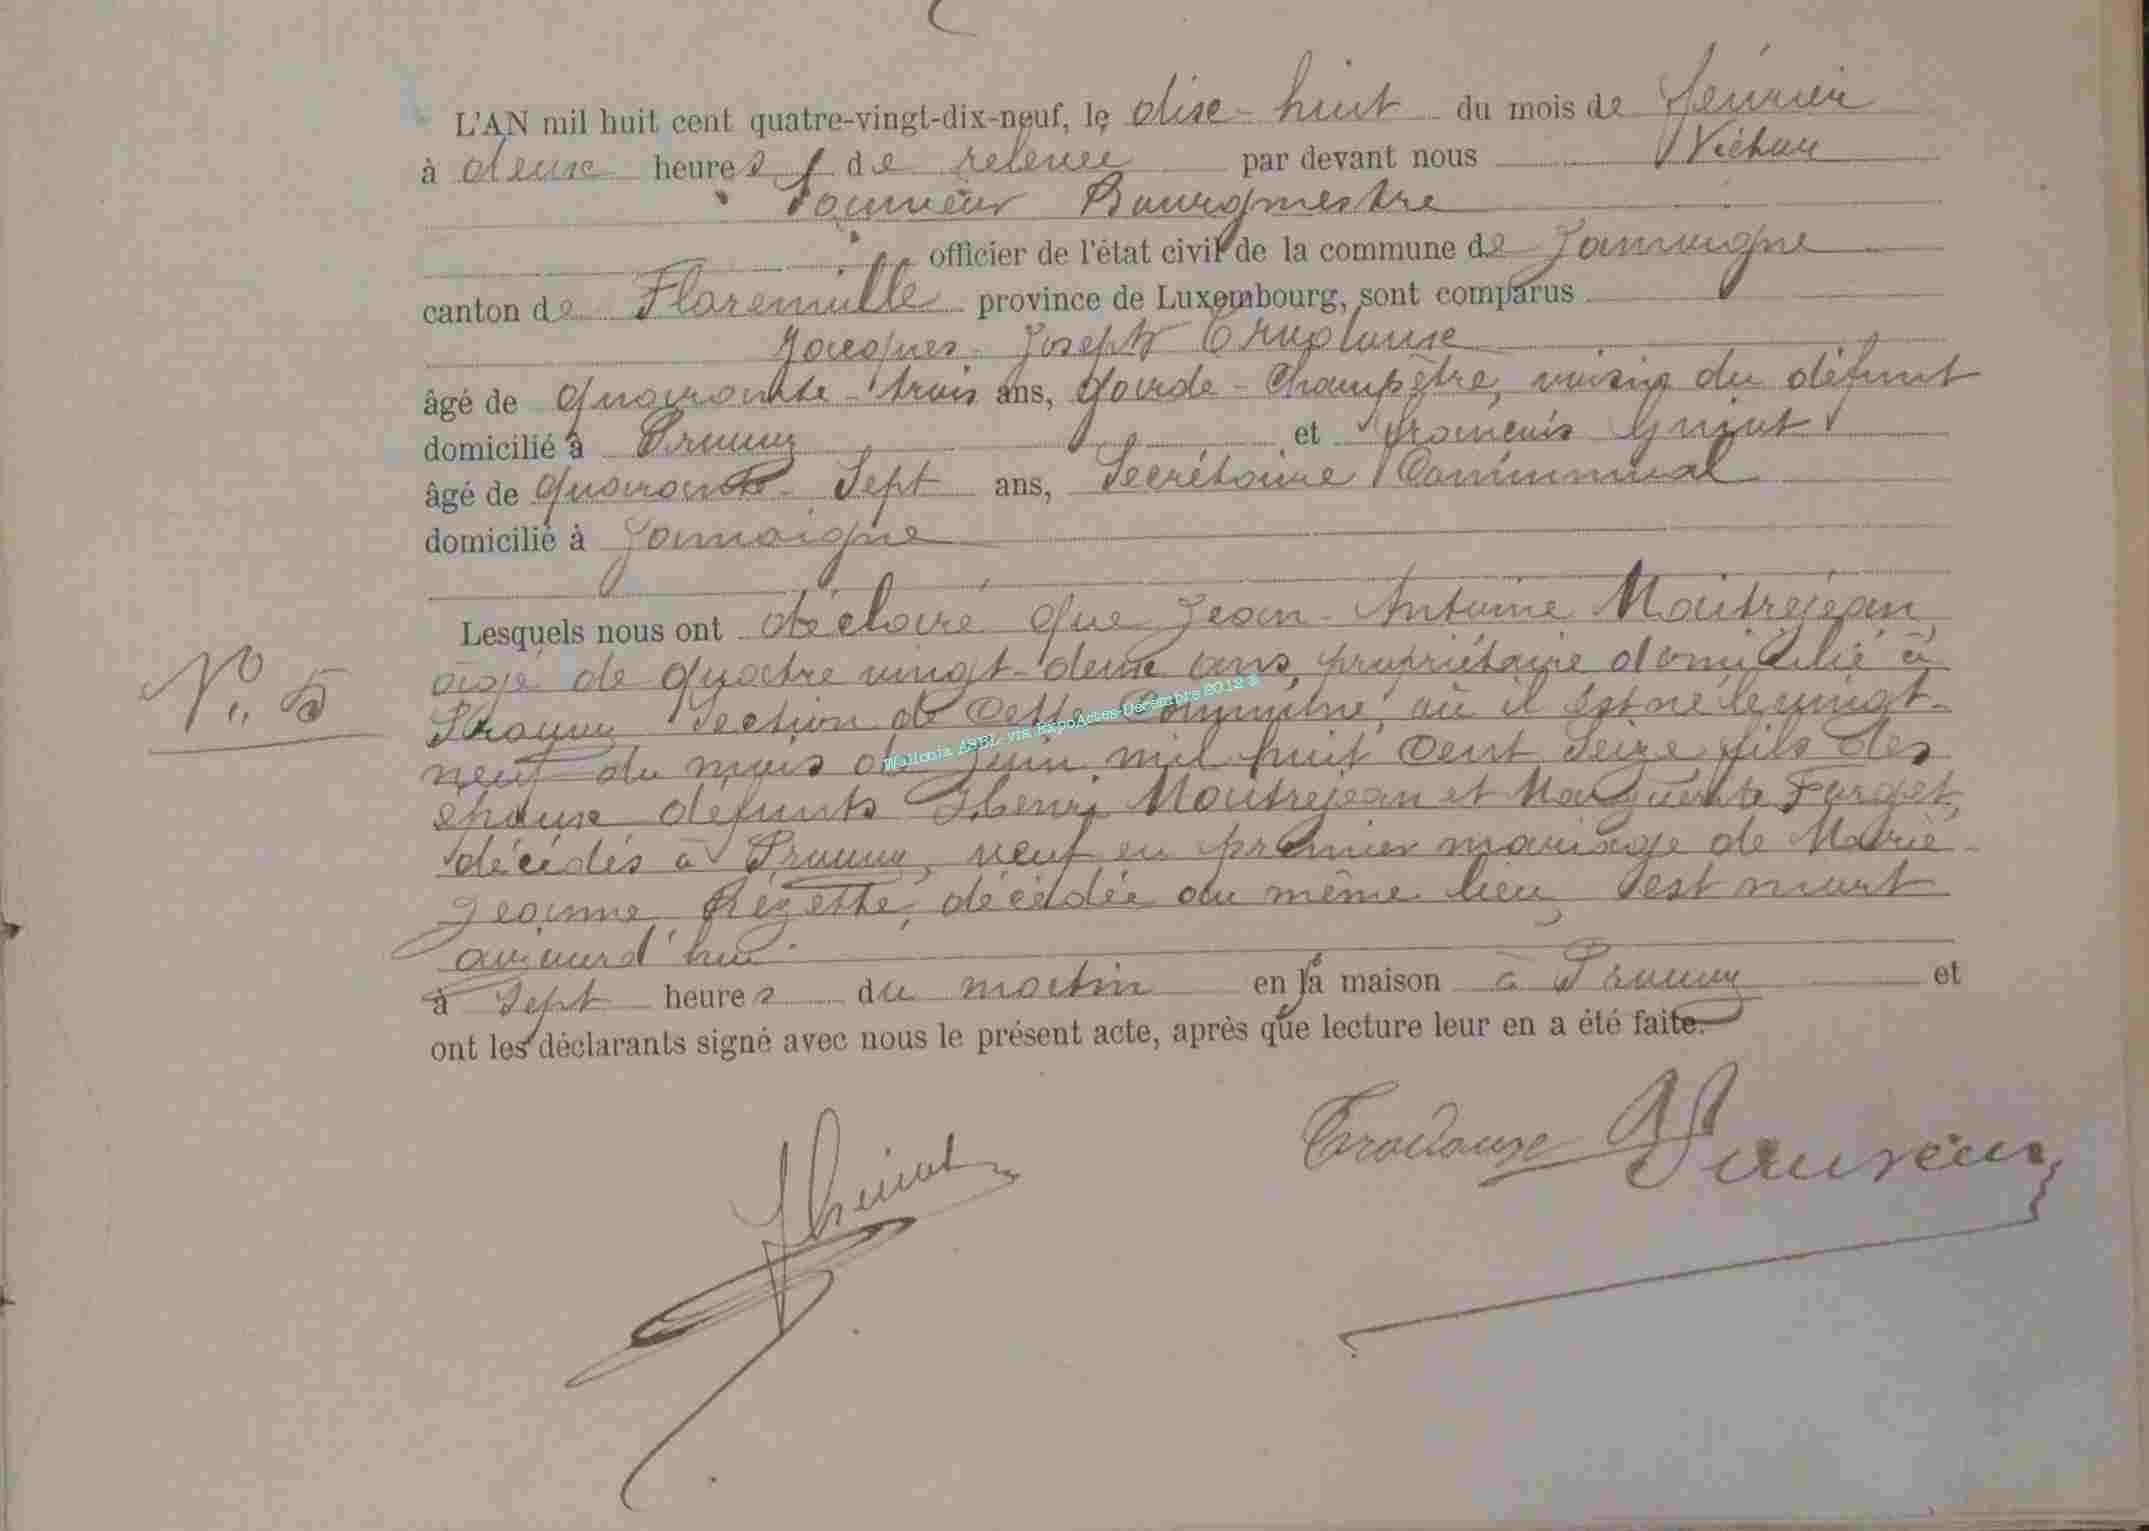 L'AN mil huit cent quatre-vingt-dix-neuf, le dix-huit du mois de février
à deux heures de relevée par devant nous
Bourgmestre
officier de l'état civil de la commune de Jamoigne
canton de Florenville province de Luxembourg, sont comparus
Jacques-Joseph
âgé de quarante-trois ans, garde-Champêtre, voisin du défunt
domicilié à Prouvy et François
âgé de quarante-Sept ans, Secrétaire Communal
domicilié à Jamoigne
Lesquels nous ont déclaré que Jean-Antoine Maitrejean,
N° 5
âgé de quatre vingt-deux ans, propriétaire domicilié à
Prouvy Section de cette Commune, où il est né le vingt-
neuf du mois de Juin mil huit cent Seize fils des
époux défunts Henri Maitrejean et Marguerite Farget,
décédés à Prouvy, veuf en premier mariage de Marie-
Jeanne décédée au même lieu, est mort
aujourd'hui
à Sept heures du matin en sa maison à Prouvy et
ont les déclarants signé avec nous le présent acte, après que lecture leur en a été faite.
Wallonia ASBL via ExpoActes-Decembre 2012